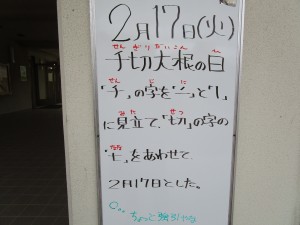 2月17日(火)
せんぎりだいこん ひ
千切大根の日
せん じ に
「千」の字を「二」と「1」
みた せつ
に見立て、「切」の字の
「七」をあわせて
2月17日とした。
ちょっと強引やな